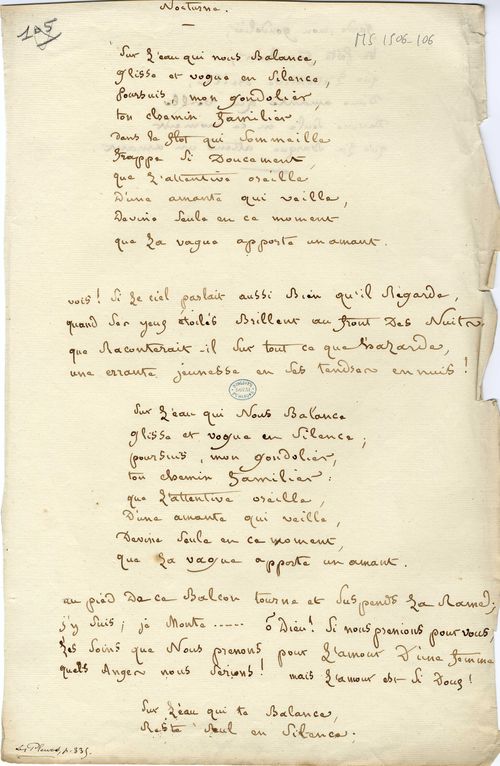 Nocturne.
105
MS 1506-106
Sur L'eau qui nous Balance,
Glisse et vogue en Silence,
Poursuis, mon gondolier,
ton chemin familier
dans le flot qui Sommeille
frappe Si Doucement,
que L'attentive oreille
D'une amante qui veille,
Devine Seule en ce moment
que La vague apporte un amant.
vois! Si Le ciel parlait aussi Bien qu'il Regarde,
quand Ses yeux étoilés Brillent au front Des Nuits
que Raconterait-il Sur tout ce que hazarde,
une errante jeunesse en Ses tendres ennuis!
Sur L'eau qui Nous Balance
Glisse et vogue en Silence;
poursuis, mon gondolier,
ton chemin familier:
que L'attentive oreille,
D'une amante qui veille,
Devine Seule en ce moment,
que La vague apporte un amant.
au pied De ce Balcon tourne et Suspends La Rame;
j'y Suis; je Monte...... ô Dieu! Si nous prenions pour vous
Les Soins que Nous prenons pour L'amour D'une femme
quels Anges nous Serions! mais L'amour est Si Doux!
Sur L'eau qui te Balance,
Reste Seul en Silence.
Les Pleurs, p. 335.